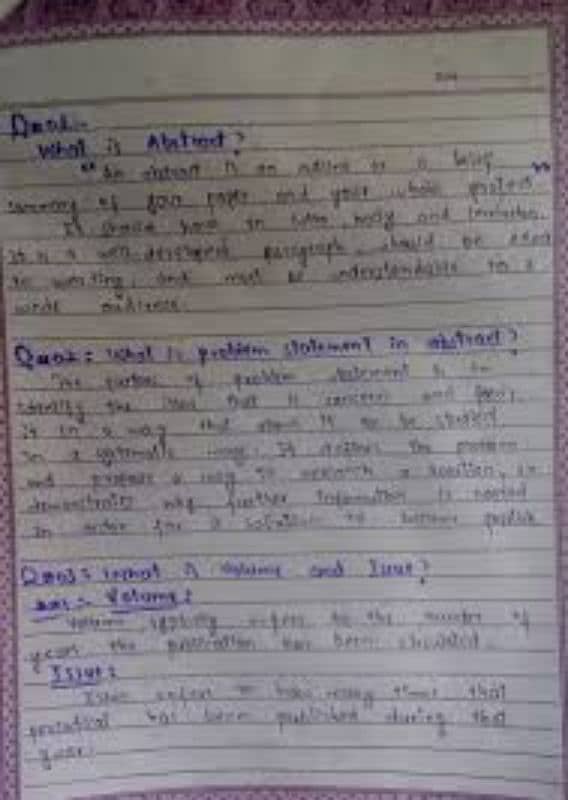 Ques1:-
What is Abstract?
"An abstract is an outline or a brief
summary of your paper and your whole project"
It should have an intro, body and conclusion.
It is a well-developed paragraph, should be exact
in wording, and must be understandable to a
wide audience.
Ques2: What is problem statement in abstract?
The purpose of problem statement is to
identify the issue that is concern and focus
it in a way that allow it to be studied
in a systematic way. It defines the problem
and proposes a way to research a solution, or
demonstrates why further information is needed
in order for a solution to become possible
Ques3: What is volume and Issue?
Ans:- Volume:
Volume typically refers to the number of
years the publication has been circulated.
Issue:
Issue refers to how many times that
periodical has been published during that
year.